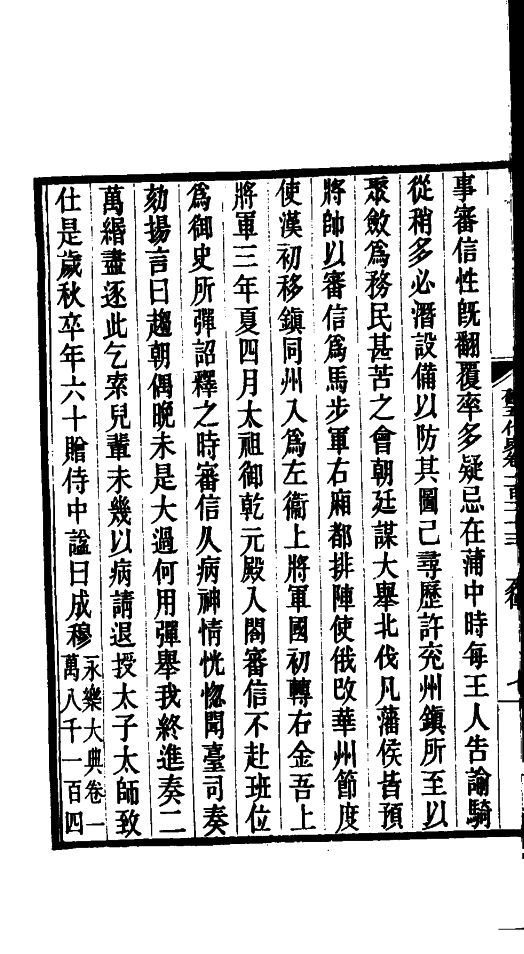 事審信性旣翻覆率多疑忌在蒲中時每王人告諭騎
從稍多必潛設備以防其圖己尋歷許兗州鎮所至以
聚斂爲務民甚苦之會朝廷謀大舉北伐凡藩侯皆預
將帥以審信爲馬步軍右廂都排陣使俄改華州節度
使漢初移鎮同州入爲左衞上將軍國初轉右金吾上
將軍三年夏四月太祖御乾元殿入閤審信不赴班位
爲御史所彈詔釋之時審信久病神情恍惚聞臺司奏
劾揚言曰趨朝偶晚未是大過何用彈舉我終進奏二
萬緡盡逐此乞索兒輩未幾以病請退授太子太師致
仕是歲秋卒年六十贈侍中諡曰成穆
永樂大典卷一
萬八千一百四